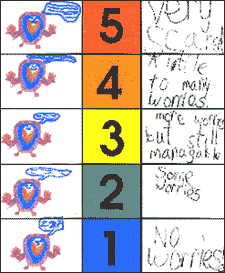 5
Very
Scard
4
A little
to many
worries.
3
more worries
but still
managable
2
Some
worries
1
NO
worries